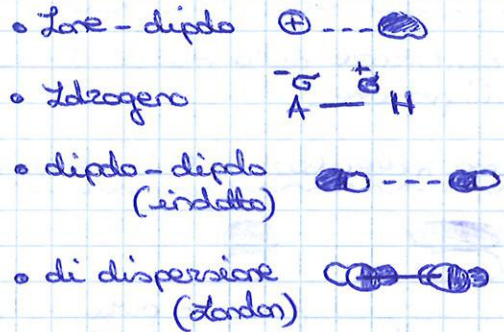 • Ione - dipolo ⊕ ---
• Idrogeno -σ A — +σ H
• dipolo - dipolo ---
(indotto)
• di dispersione
(London)